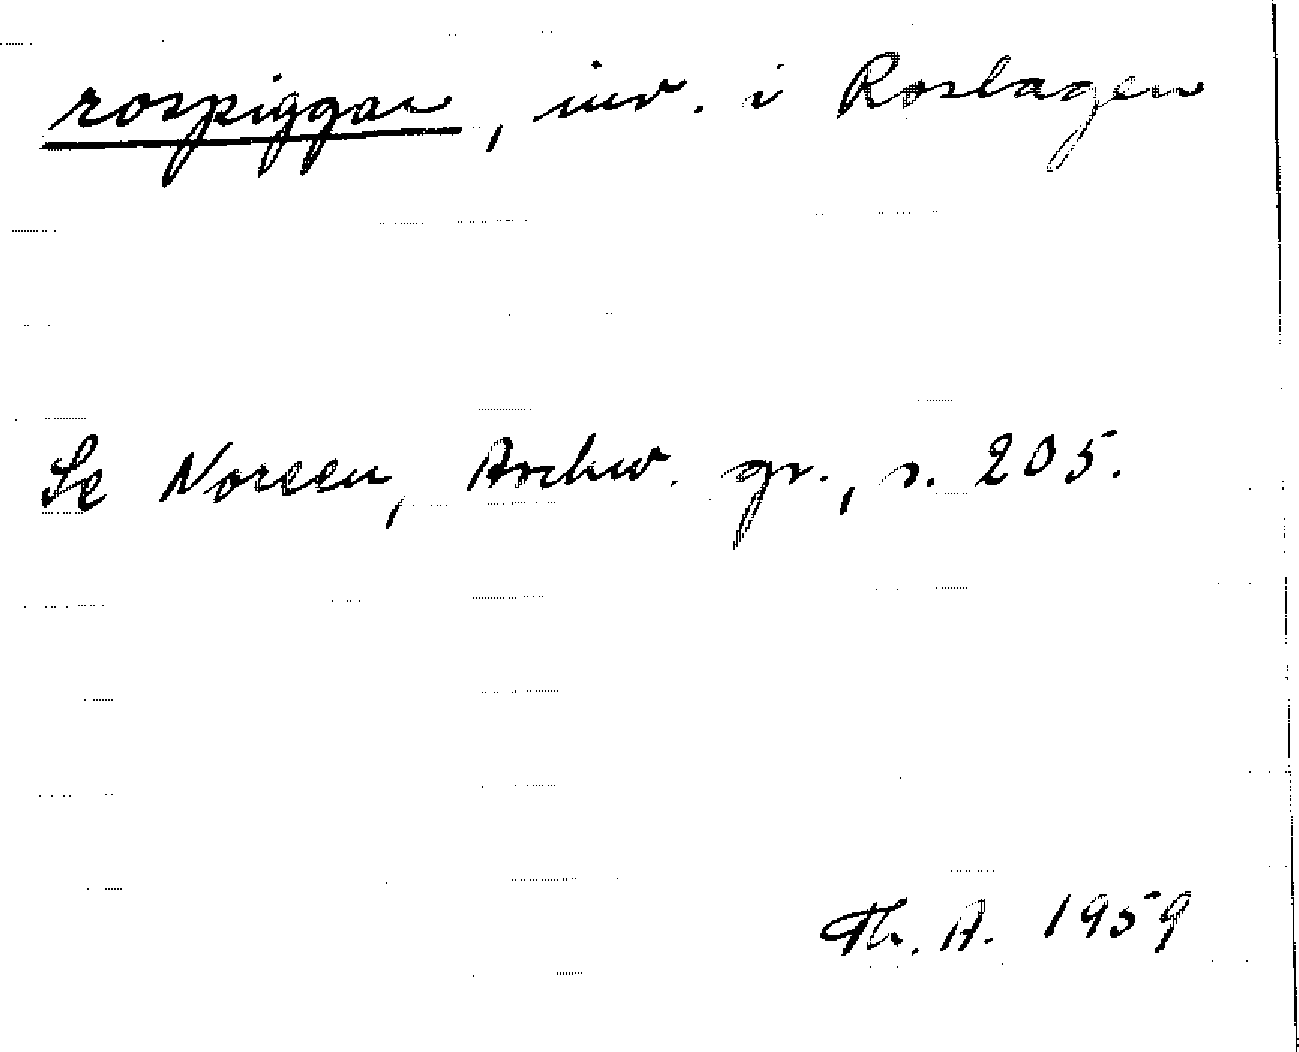 rospiggar, inv. i Roslagen
Se Noreen, Aschw. gr., s. 205.
Th. A. 1959